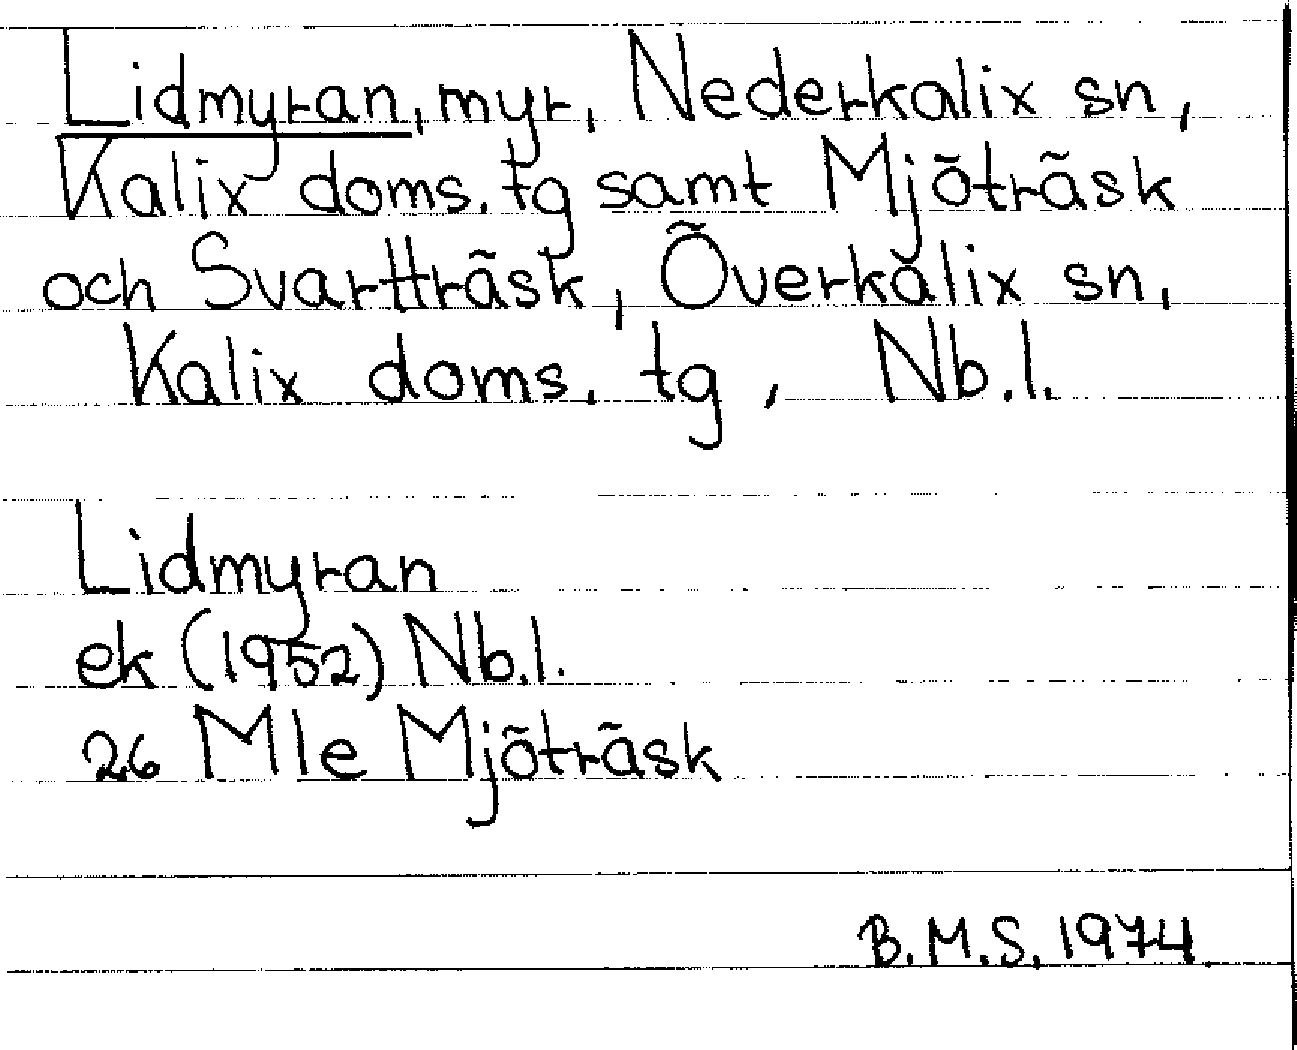 Lidmyran, myr, Nederkalix sn,
Kalix doms. tg samt Mjöträsk
och Svartträsk, Överkalix sn,
Kalix doms. tg, Nb.l.
Lidmyran
ek (1952) Nb.l.
26 Mle Mjöträsk
B.M.S. 1974.